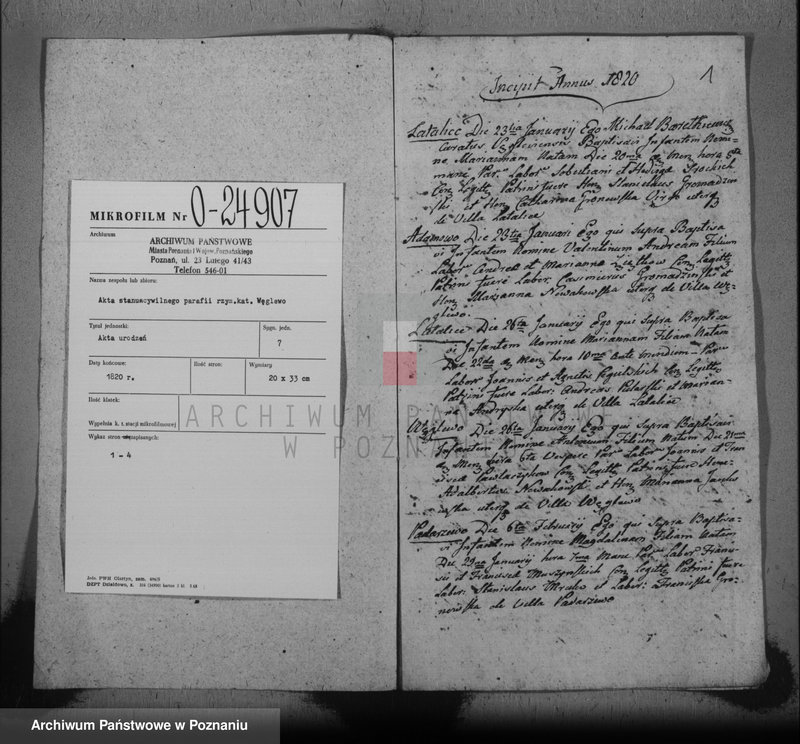 MIKROFILM Nr O-24907
Archiwum
ARCHIWUM PAŃSTWOWE
Miasta Poznania i Wojew. Poznańskiego
Poznań, ul. 23 Lutego 41/43
Telefon 546-01
Nazwa zespołu lub zbioru:
Akta stanucywilnego parafii rzym.kat. Węglewo
Tytuł jednostki:
Akta urodzeń
Sygn. jedn.
7
Daty końcowe:
1820 r.
Ilość stron:
Wymiary
20 x 33 cm
Ilość klatek:
Wypełnia k. t. stacji mikrofilmowej
Wykaz stron
1 - 4
ARCHIWUM PAŃSTWOWE
W POZNANIU
1
Incipit Annus 1820
Latalice Die 23tia January Ego Michael
Curatus Baptisavi Infantem Nomi-
ne Mariannam Natam Die 20ma hora
mane Par. Labor. Sobestiani et
Con Legitt Patrini fuere Hon. Stanislaus Gromadzin
ski et Hon Catharina Virgo uterq
de Villa Latalice
Adamowo Die 23tia Januari Ego qui Supra Baptisa
vi Infantem Nomine Valentinum Andream Filium
Labor Andrea et Marianna Con Legitt
Patrini fuere Labor. Casimirus Gromadzinski et
Hon Marianna Nowakowska uterq de Villa Wę
glewo.
Latalice Die 26ta January Ego qui Supra Baptisa
vi Infantem Nomine Mariannam Filiam Natam
Die 22da Men hora 10ma ante meridiem Par.
Labor Joannis et Agnetis Con Legitt
Patrini fuere Labor. Andreas et Marian-
na uterq de Villa Latalice
Węglewo Die 26ta January Ego qui Supra Baptisavi
Infantem Nomine Antonium Filium Natum Die 21ma
Men hora 6ta Vespere Par. Labor Joannis et Fran
Con Legitt Patrini fuere Hone.
Adalbertus Nowakowski et Hon Marianna
uterq de Villa Węglewo
Padarzewo Die 6ta Februarii Ego qui Supra Baptisa-
vi Infantem Nomine Magdalenam Filiam Natam
Die 29na January hora 7ma Mane Par. Labor
et Francisca Con Legitt Patrini fuere
Labor. Stanislaus et Labor. Franciska Gro-
nowska de Villa Padarzewo
Archiwum Państwowe w Poznaniu